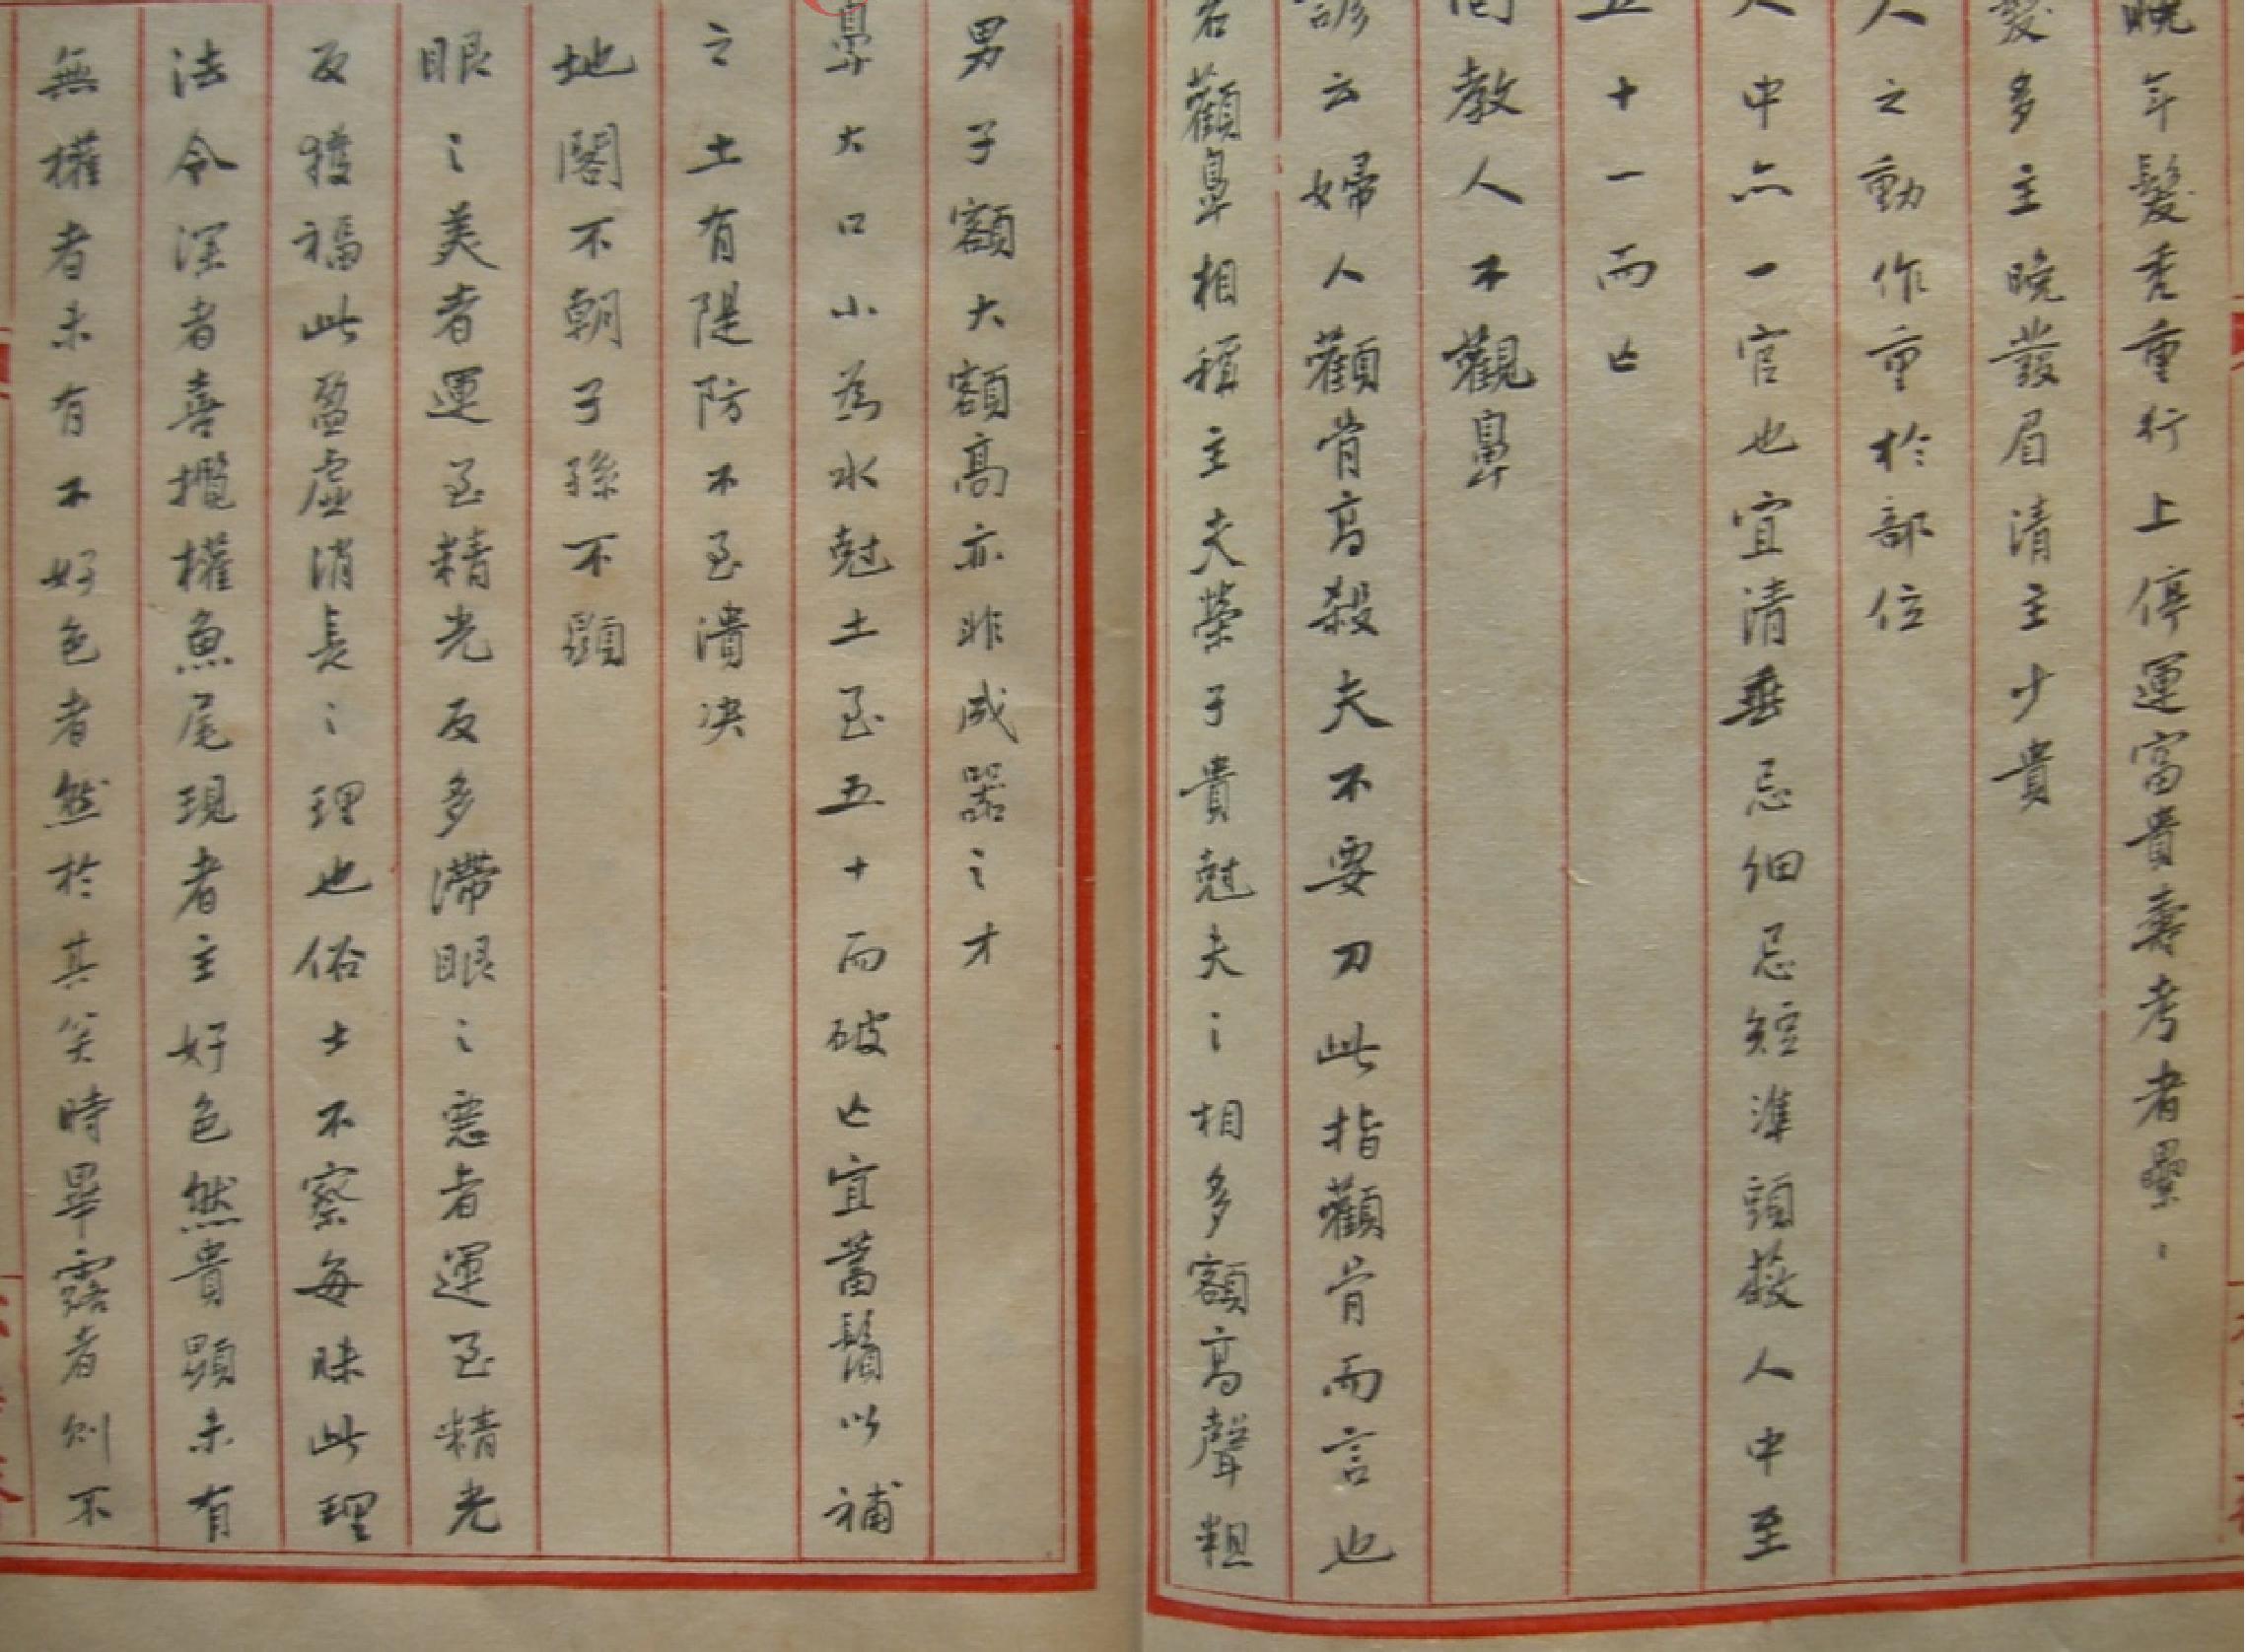 晚年髮秀重行上停運富貴壽考者壘〻
髮多主晚發眉清主少貴
人之動作重於部位
人中亦一官也宜清垂忌细忌短準頭蔽人中至
五十一而亡
尚教人不觀鼻
諺云婦人顴骨高殺夫不要刀此指顴骨而言也
若顴鼻相稱主夫榮子貴尅夫之相多額高聲粗
男子額大額高亦非成器之才
鼻大口小為水尅土至五十而破亡宜蓄鬚以補
之土有隄防不至潰决
地閣不朝子孫不顯
眼之美者運至精光反多滯眼之惡者運至精光
反獲福此盈虛消長之理也俗士不察每昧此理
法令深者喜攬權魚尾現者主好色然貴顯未有
無權者未有不好色者然於其笑時畢露者則不